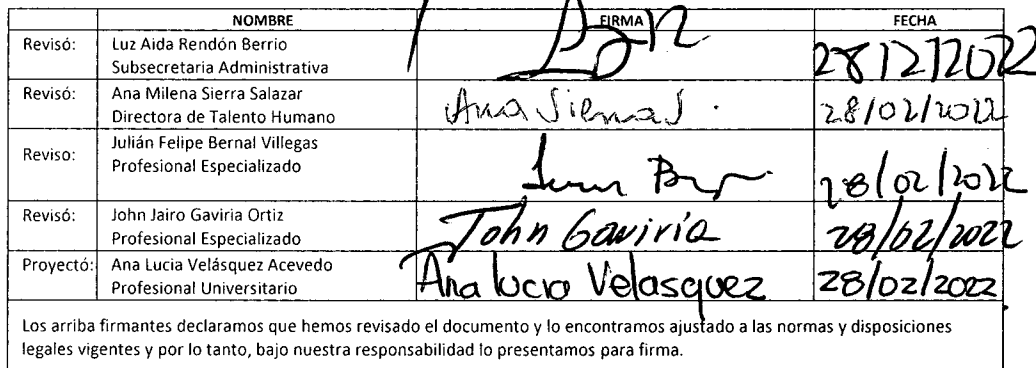 NOMBRE FIRMA FECHA
Revisó: Luz Aida Rendón Berrio
Subsecretaria Administrativa 28/2/2022
Revisó: Ana Milena Sierra Salazar
Directora de Talento Humano Ana Sierra S. 28/02/2022
Reviso: Julián Felipe Bernal Villegas
Profesional Especializado 28/02/2022
Revisó: John Jairo Gaviria Ortiz
Profesional Especializado John Gaviria 28/02/2022
Proyectó: Ana Lucia Velásquez Acevedo
Profesional Universitario Ana Lucia Velasquez 28/02/2022
Los arriba firmantes declaramos que hemos revisado el documento y lo encontramos ajustado a las normas y disposiciones
legales vigentes y por lo tanto, bajo nuestra responsabilidad lo presentamos para firma.